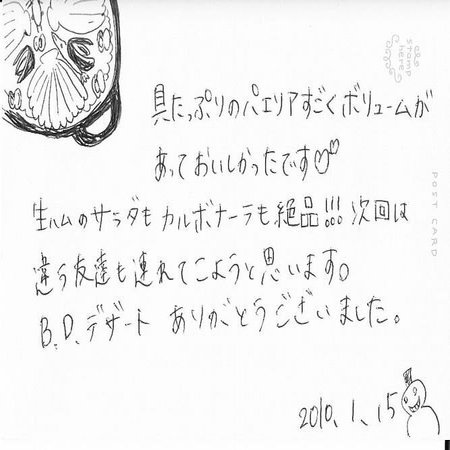 stamp
here
POST CARD
具たっぷりのパエリアすごくボリュームが
あっておいしかったです♡♡
生ハムのサラダもカルボナーラも絶品!!! 次回は
違う友達も連れてこようと思います。
B.D.デザート ありがとうございました。
2010.1.15